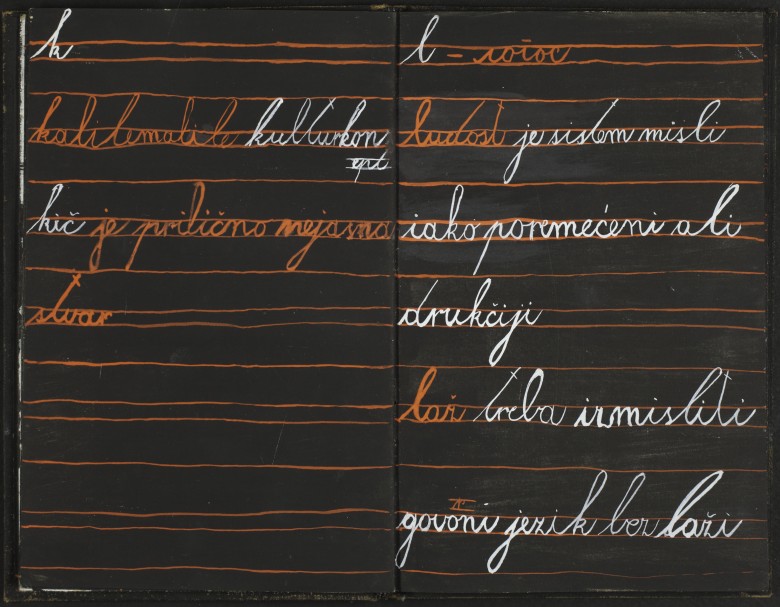 k
kalilemalile kulturkon
ept
kič je prilično nejasna
stvar
l –
ludost je sistem misli
iako poremećeni ali
drukčiji
laž treba izmisliti
govorni jezik bez laži